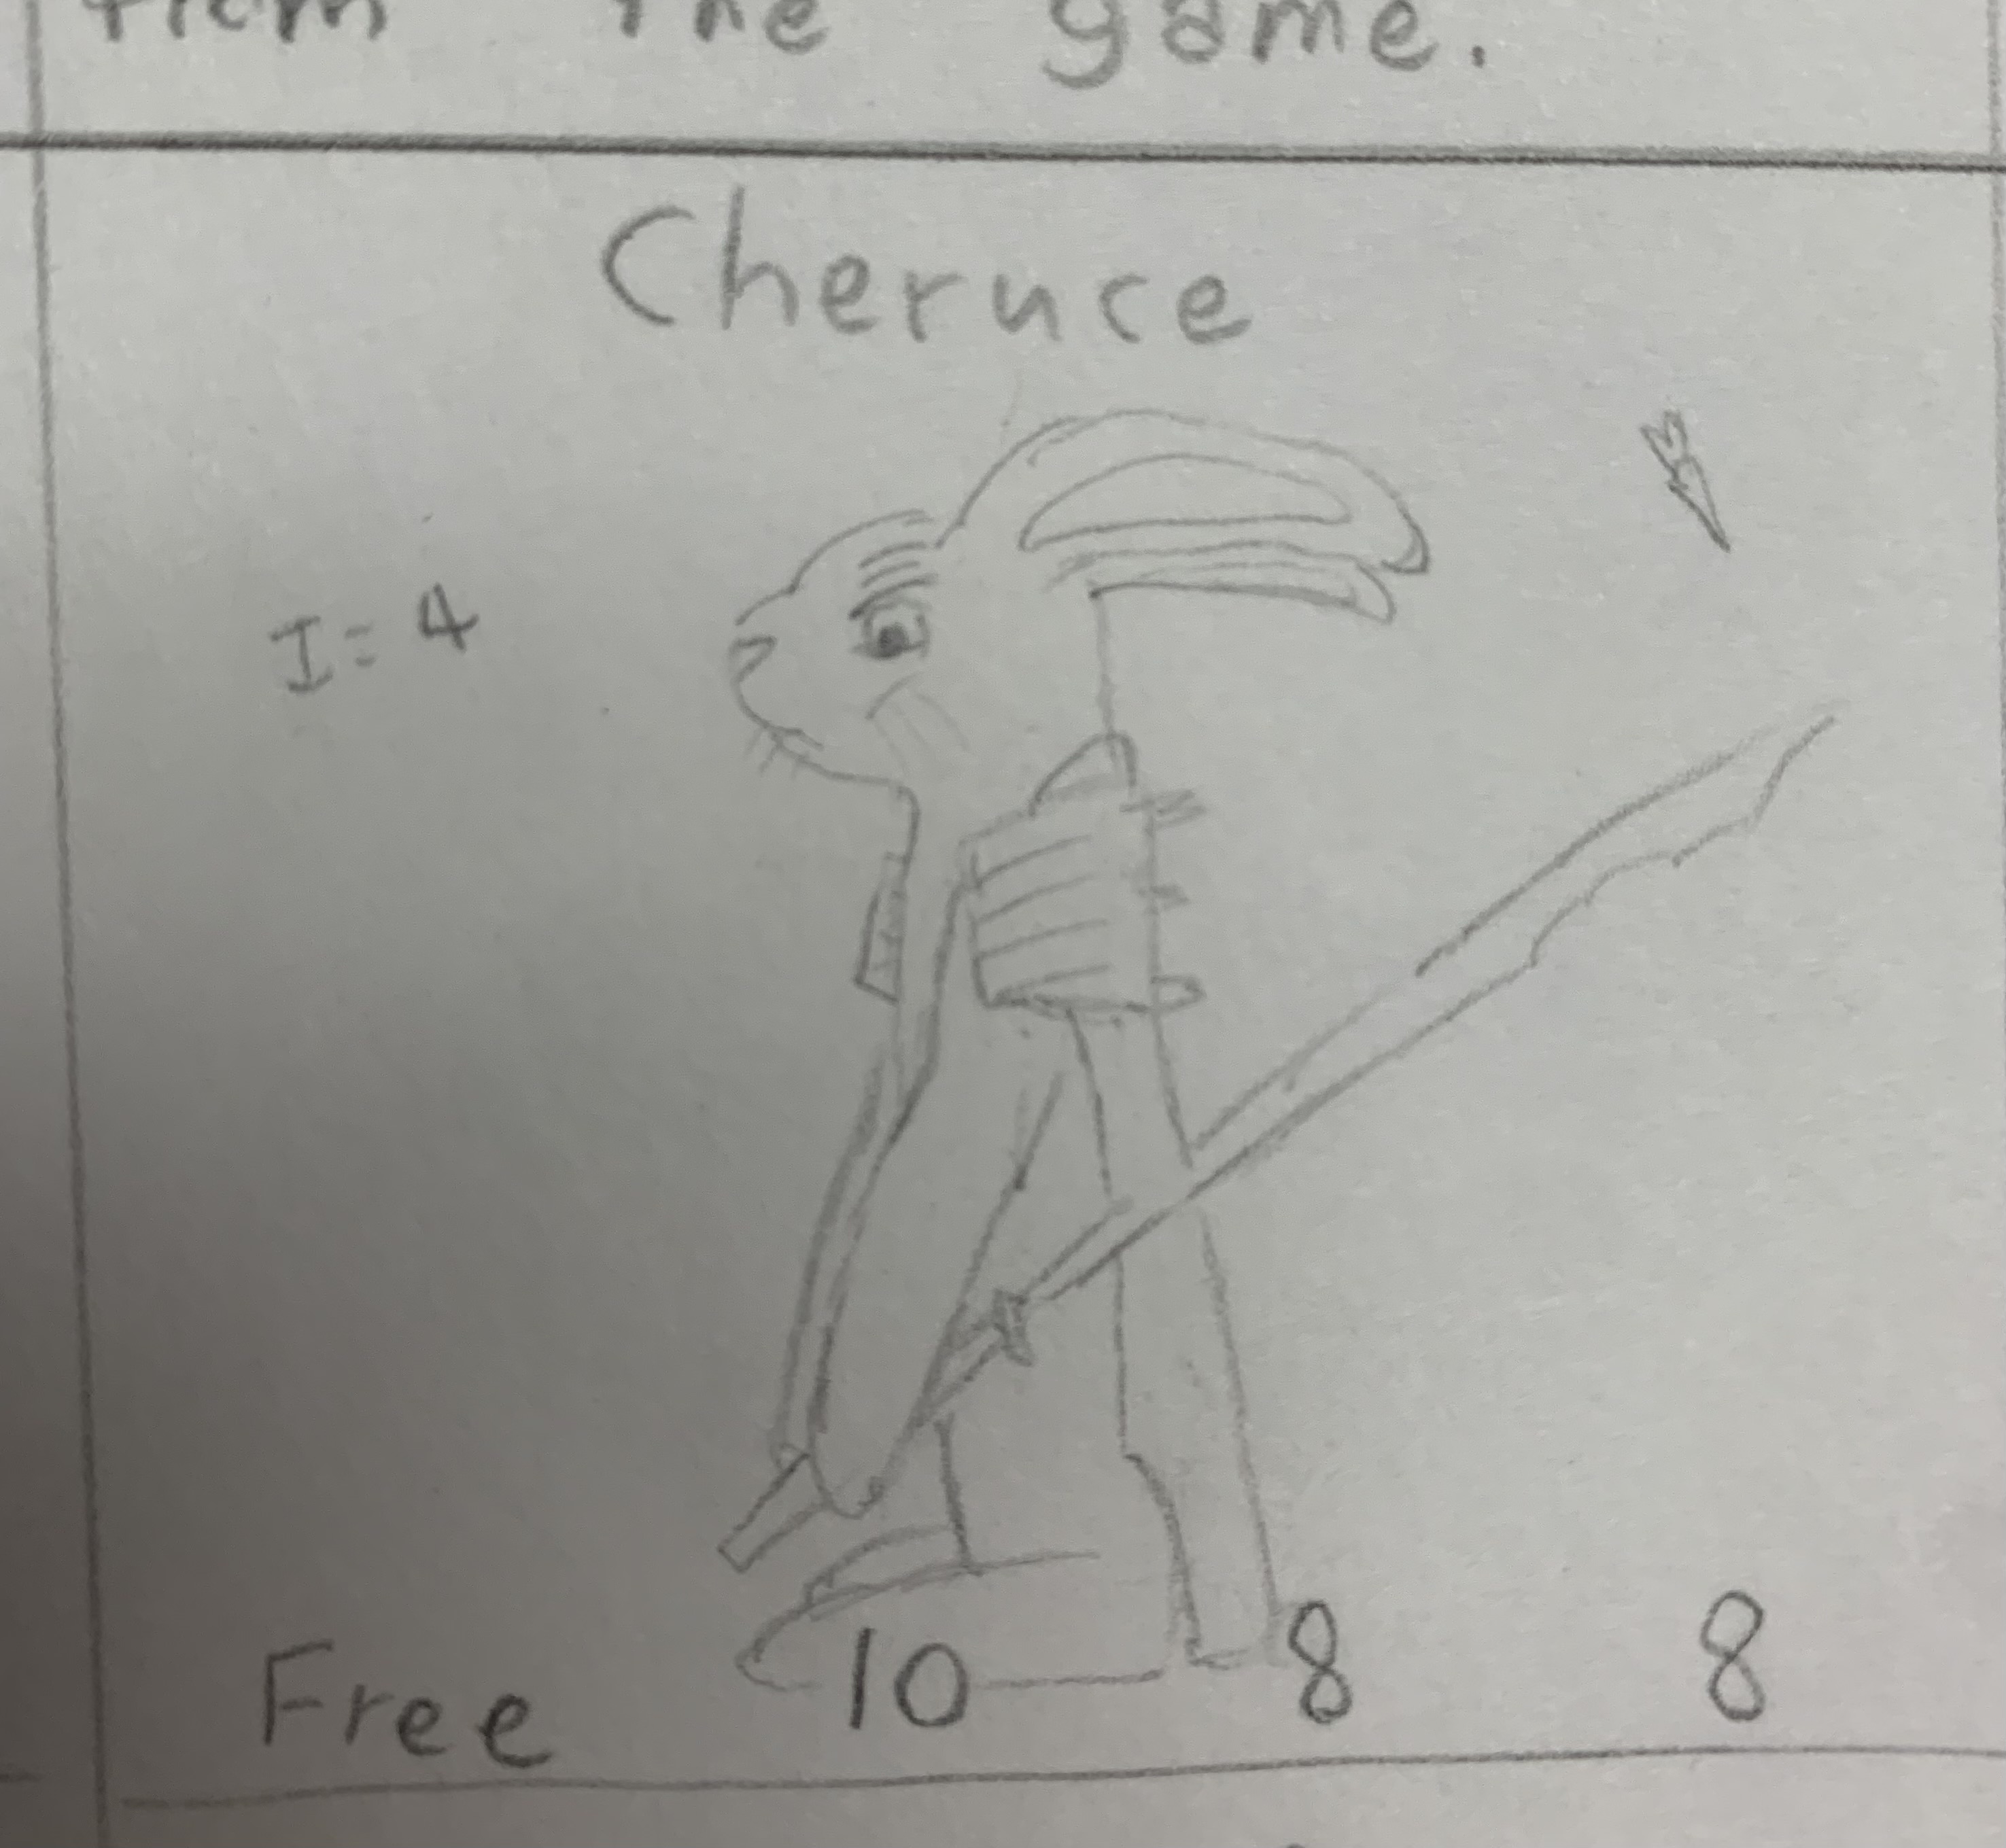 from the game.
Cheruce
I = 4
Free 10 8 8